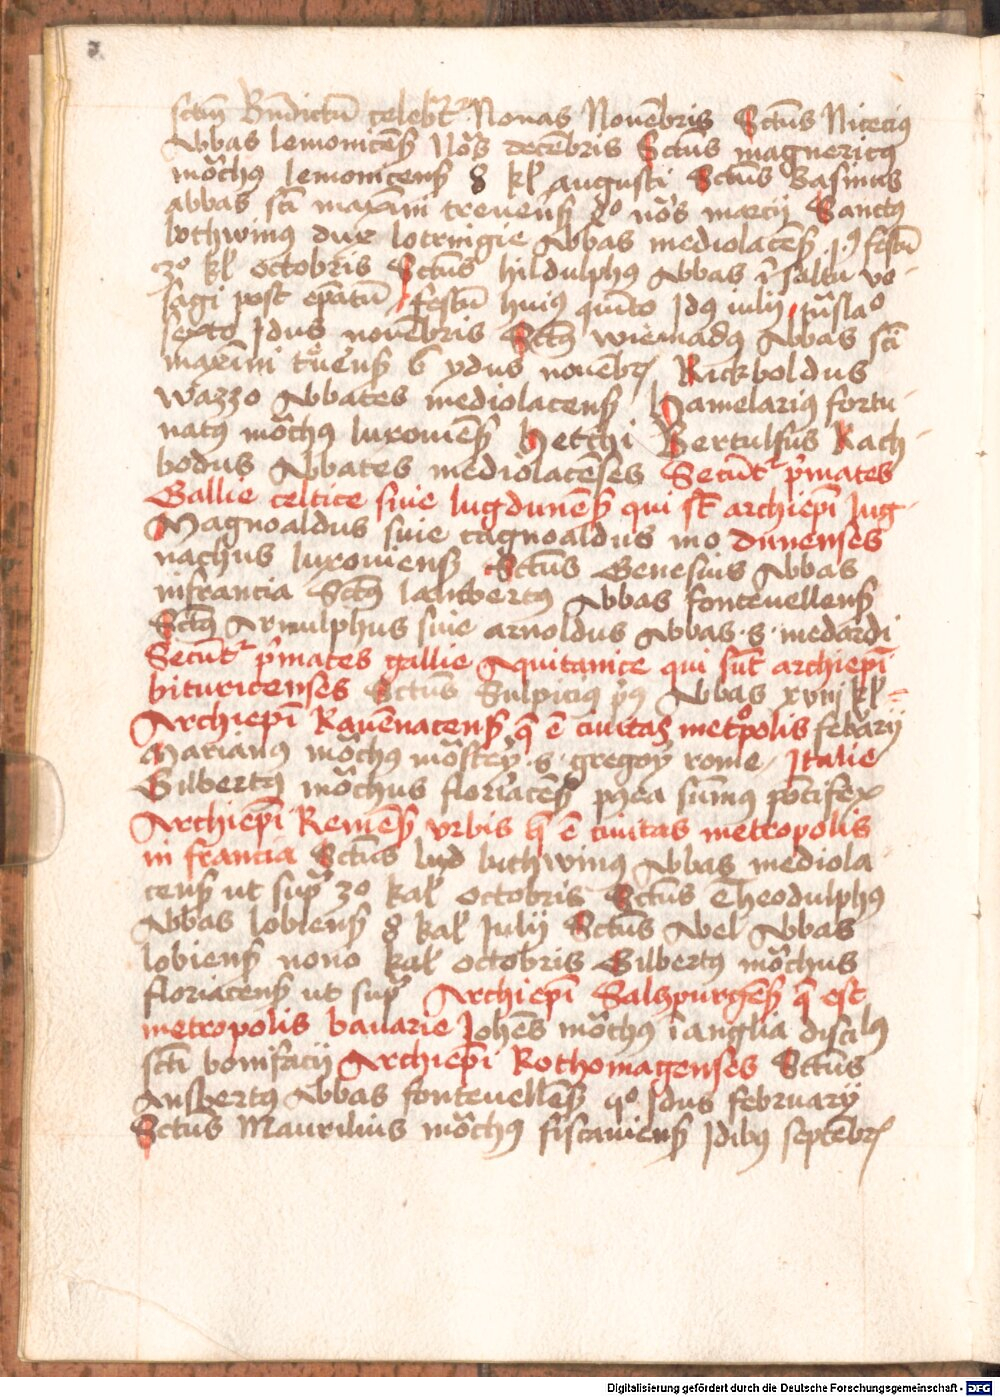 sctū Bn̄dictū celebr̄t Nonas Novēbris Sctūs Niceciꝰ
Abbas lemonicēs̄ Noīs decēbris Sctūs magnericꝰ
mōchꝰ lemonicens̄ 8 kl̄ augusti Sctūs Basinus
abbas sc̄ti maxīni treuens̄ 4º no̅s marcij Sanctꝰ
bothwinꝰ dux lotringie Abbas mediolacēs̄ festū
3º kl̄ octobris Sctūs hildulphꝰ Abbas ī saltu vo-
sagi post ep̄atū festū huiꝰ quīto Jdꝰ iulij trāslaº
sexto Jdus novēbris Sctūs wiēmadꝰ Abbas sc̄ti
maxīni treuēns̄ 6 ydus novēbr̄ Rickboldus
wazzo Abbates mediolacens̄ Hamelariꝰ fortu-
natꝰ mōchꝰ luxouiēs̄ Hetthi Bertulfus Rach-
bodus Abbates mediolacēses Secūt᷑ p̄mates
Gallie celtice siue lugdunēs̄ qui st̄ archiep̄i lug-
Magnoaldus siue cagnoaldus mo dunenses
nachus luxouiens̄ Sctūs Genesius Abbas
infrancia Sctūs lambertꝰ Abbas fontenellens̄
Sctūs Arnulphus siue arnoldus Abbas · s · medardi
Secūt᷑ p̄mates gallie Aquitanice qui sūt archiep̄i
bituricenses Sctūs Sulpiciꝰ p̄iꝰ Abbas xviij kl̄
Archiep̄i Rauēnacens̄ q̄ ē ciuitas metº̄polis febuārij
Marianꝰ mōchꝰ mōstrij · s · gregorij rome Jtalie
Gilbertꝰ mōchus floriacēs̄ postea sūmꝰ pōtifex
Archiep̄i Remēs̄ vrbis q̄ ē ciuitas metropolis
in francia Sctūs lud buthwinꝰ Abbas mediola
cens̄ ut sup̄ 3º kal̄ octobris Sctūs Theodulphꝰ
Abbas lobiens̄ 8 kal̄ Julij Sctūs Abel Abbas
lobiens̄ nono kal̄ octobris Gilbertꝰ mōchus
floriacens̄ ut sup̄ Archiep̄i Salzpurgēs̄ q̄ est
metropolis bauarie Johēs mōchꝰ ī anglia discilꝰ
sc̄ti bonifacij Archiep̄i Rothomagenses Sctūs
Ansbertꝰ Abbas fontenellēs̄ qº Jdus february
Sctūs Maurilius mōchꝰ fiscaniens̄ Jdibꝰ septēbr̄
Digitalisierung gefördert durch die Deutsche Forschungsgemeinschaft - DFG